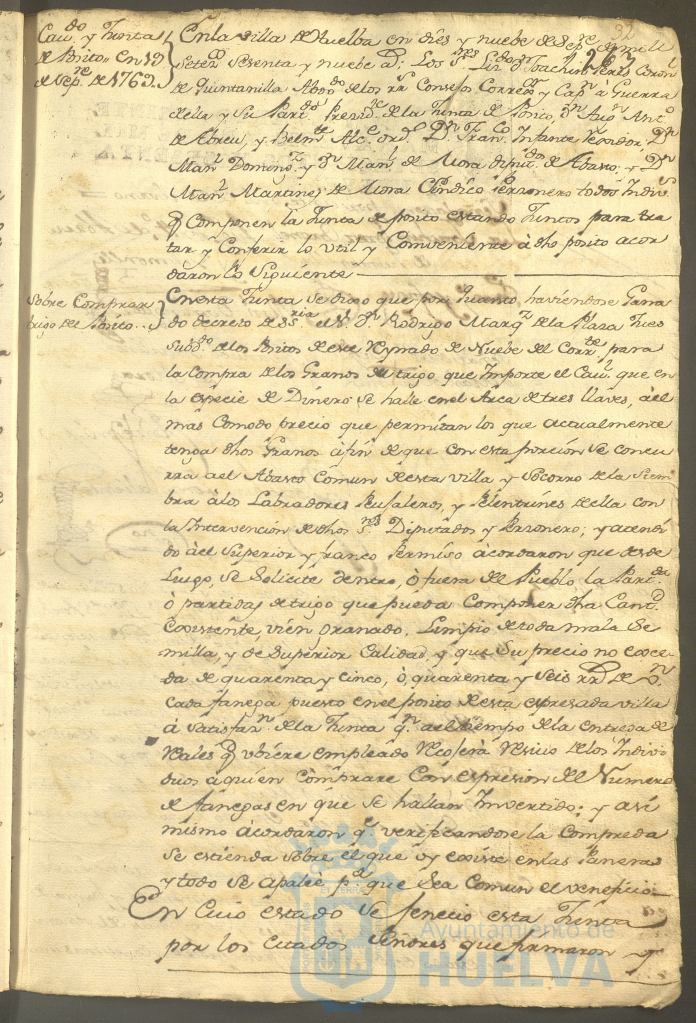 Cav.do y Junta
de Pósito en 19
de Sep.re de 1769.
92
1263
En la villa de Huelba en dies y nuebe de Sep.re de mill
setec.s sesenta y nuebe a.s Los S.res Liz.do D.n Joachin Perez Coron
de Quintanilla Abog.do de los R.s Consejos Correg.or y Cap.n à Guerra
de ella y su Part.do Presid.te de la Junta de Posito, D.n Ant.o
de Abreu, y Belm.te Alc.e ord.o D.n Fran.co Infante Rexidor, D.n
Man.l Doming.z y D.n Man.l de Mora diput.dos de Abasto, y D.n
Man.l Martinez de Mora Sindico Perzonero todos Indiv.s
q Componen la Junta de posito estando Juntos para tra
tar y Conferir lo util y Conveniente à dho posito acor
daron lo Siguiente
Sobre Comprar
trigo de Pósito
En esta Junta se dixo que por quanto haviendose Gana
do decreto de S.Sria el S.r D.n Rodrigo Marq.z de la Plaza Jues
Subd.do de los Positos de este Reynado de Nuebe del Corr.te para
la Compra de los Granos de trigo, que Importe el Cau.l que en
la especie de Dinero se halle en el Arca de tres llaves, à el
mas Comodo precio que permitan los que actualmente
tenga dhos Granos à fin de que con esta porcion se concu
rra a el Abasto Comun de esta villa y Socorro de la Siem
bra à los Labradores Pusaleros, y Pelentrines de ella con
la Intervencion de dhos S.res Diputados y Perzonero; y atendi
do à el Superior y franco Permiso àcordaron que desde
Luego, se Solicite dentro, ò fuera de el Pueblo la Part.da
ò partidas de trigo que pueda Componer dha Cant.d
Coxistente, vien granado, Limpio de toda mala Se
milla, y de Superior Calidad y que su precio no exce
da de quarenta y cinco, ò quarenta y seis rr.s de v.n
Cada fanega puesto en el posito de esta espresada villa
à Satisfaz.n de la Junta q.n a el tiempo de la entrega de
Reales q ubiere empleado Recojerà Resivo de los Indivi
duos a quien comprare Con espresion de el Numero
de fanegas en que se hallan Invertido; y asi
mismo àcordaron q.e verificandose la Comprada
se estienda sobre el que oy existe en las Paneras
y todo se apalèe p.a que sea Comun el veneficio
En Cuio estado se fenecio esta Junta
por los citados Señores que firmaron
Ayuntamiento de
HUELVA